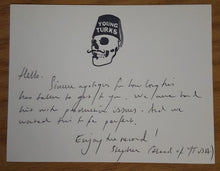 YOUNG
TURKS
Hello.
Sincere apologies for how long this
has taken to get to you. We have had
with production issues. And we
wanted this to be perfect.
Enjoy the record!
Stephen